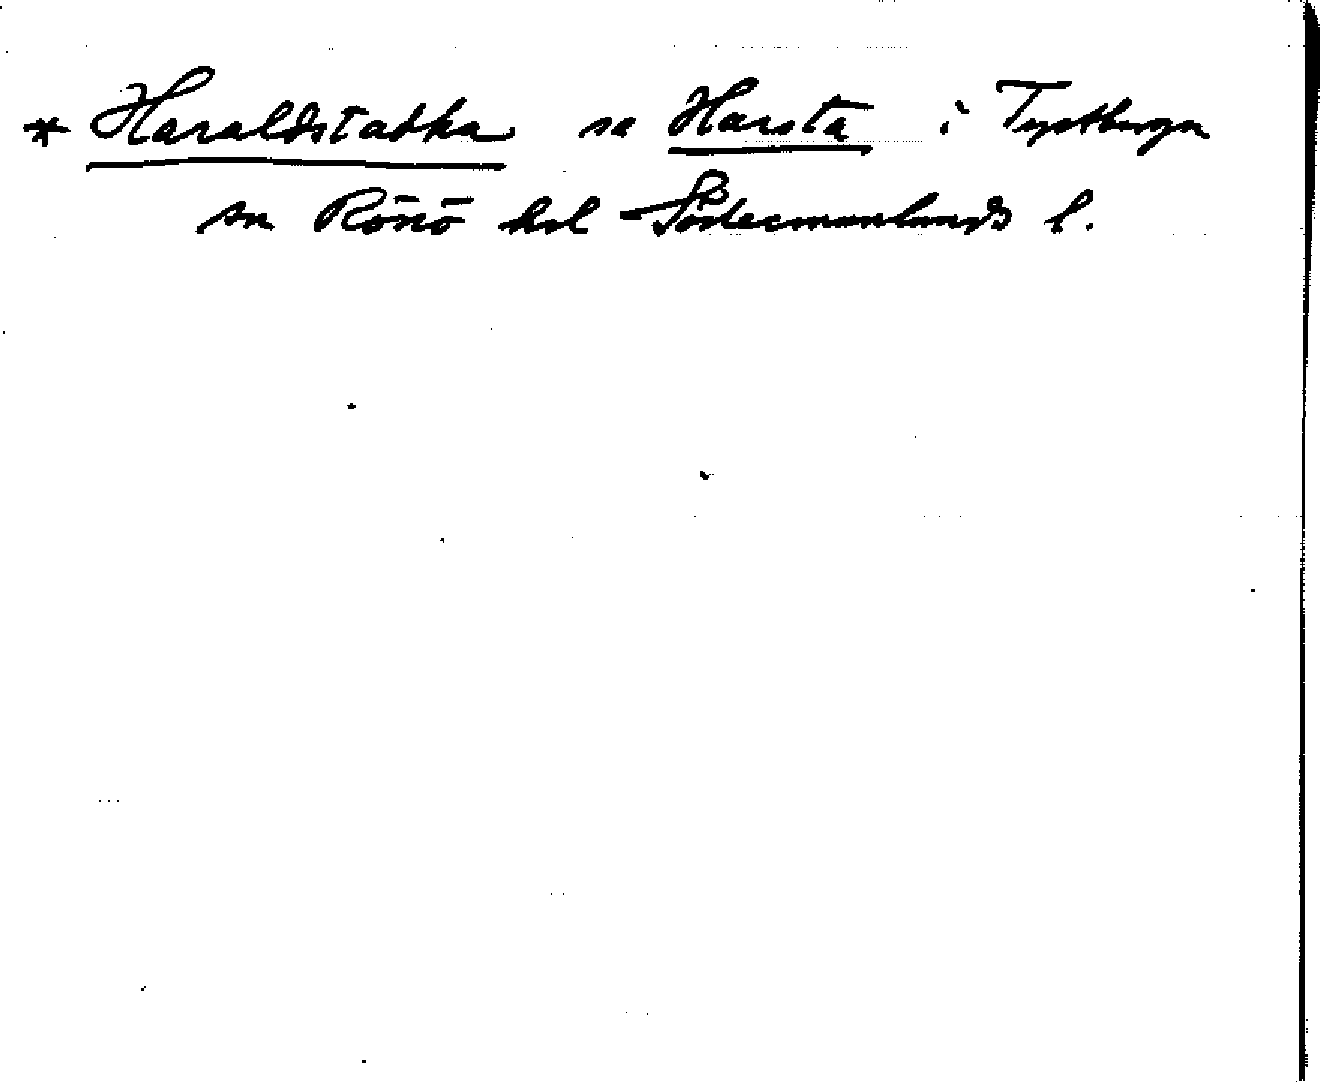 * Haraldstadha se Harsta i Tystberga
sn Rönö hd Södermanlands l.